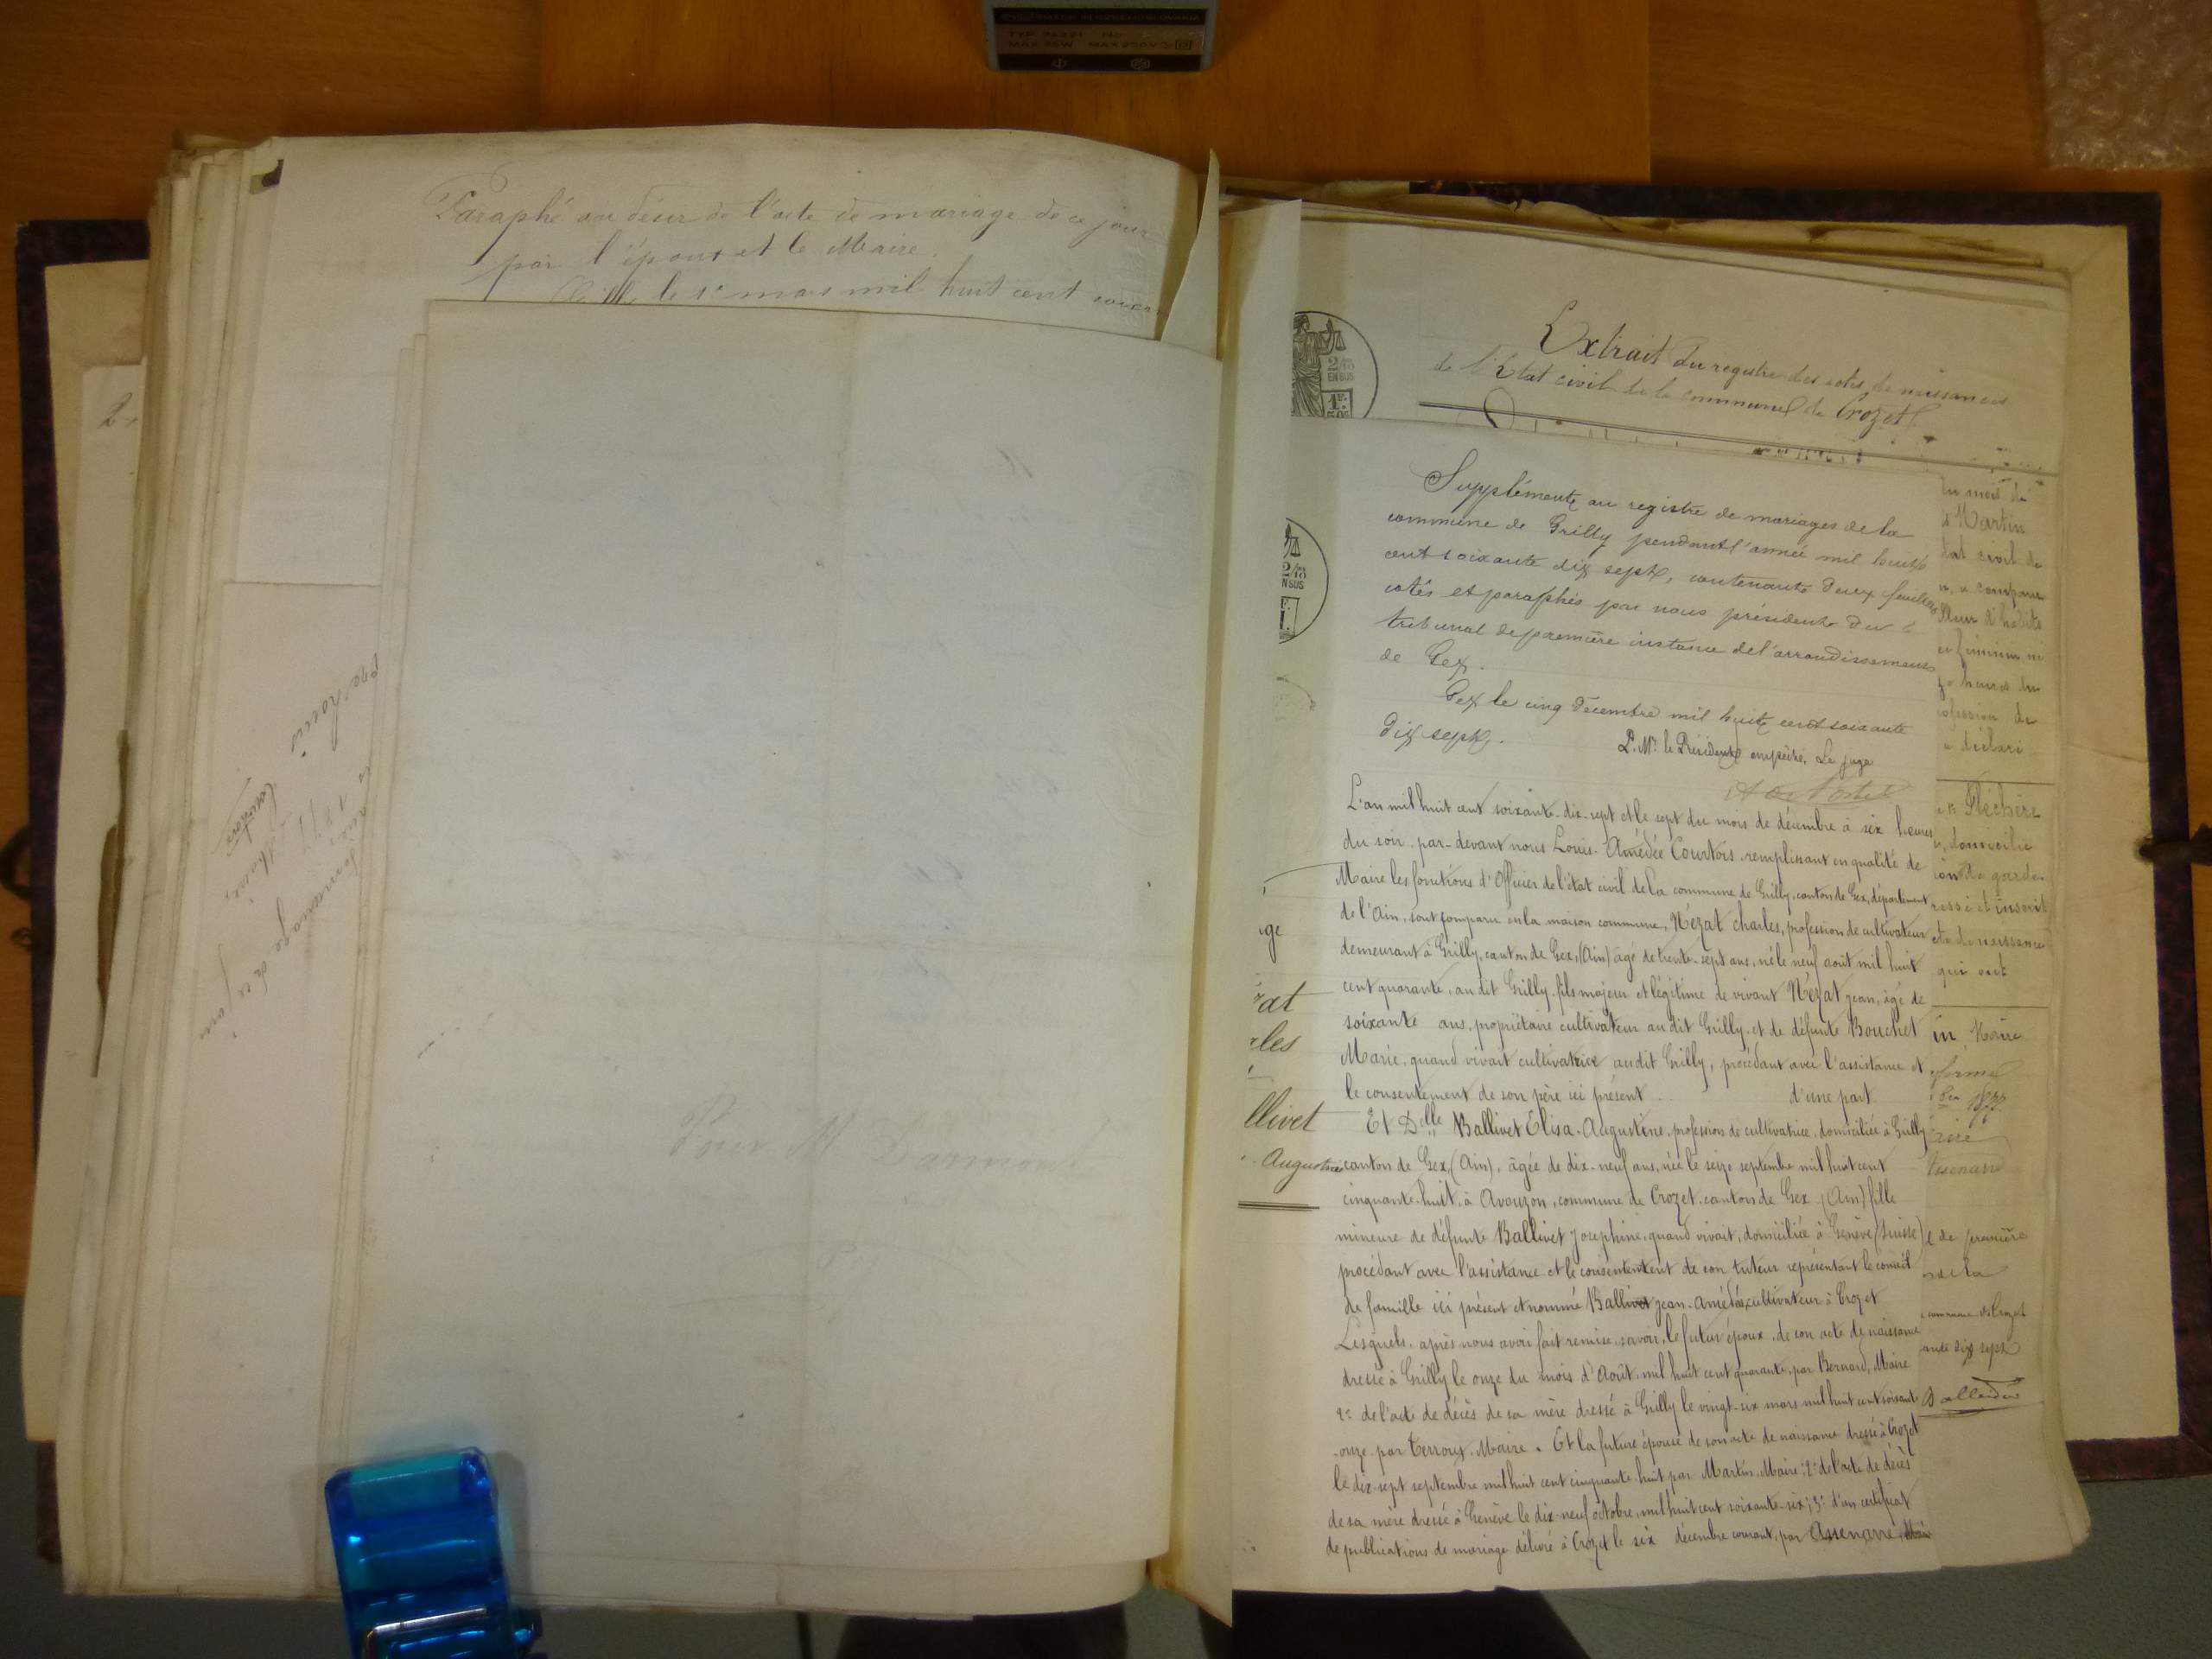 TYP
MAX 75W MAX 250V
Paraphé au désir de l'acte de mariage de ce jour
par l'époux et le Maire.
le 1er mars mil huit cent
2
Pour Mr
Extrait du registre des actes de naissances
de l'Etat civil de la commune de Crozet.
2/10
EN SUS
1F.
50c
2/10
N SUS
Supplémente au registre de mariages de la
commune de Grilly pendant l'année mil huit
cent soixante dix sept, contenant deux feuillets
cotés et paraphés par nous président du
tribunal de première instance de l'arrondissement
de Gex.
Gex le cinq Décembre mil huit cent soixante
dix sept.
P. Mr. le Président empêché, Le juge
L'an mil huit cent soixante-dix-sept et le sept du mois de décembre à six heures
du soir, par-devant nous Louis-Amédée Courtois, remplissant en qualité de
Maire les fonctions d'Officier de l'état civil de la commune de Grilly, canton de Gex, département
de l'Ain, sont comparu en la maison commune, Nézat Charles, profession de cultivateur
demeurant à Grilly, canton de Gex, (Ain) âgé de trente-sept ans, né le neuf août mil huit
cent quarante, au dit Grilly, fils majeur et légitime de vivant Nézat Jean, âgé de
soixante ans, propriétaire cultivateur au dit Grilly, et de défunte Bouchet
Marie, quand vivait cultivatrice audit Grilly, procédant avec l'assistance et
le consentement de son père ici présent d'une part
Et Delle Ballivet Elisa-Augustine, profession de cultivatrice, domiciliée à Grilly
canton de Gex, (Ain), âgée de dix-neuf ans, née le seize septembre mil huit cent
cinquante-huit, à Avouzon, commune de Crozet, canton de Gex (Ain) fille
mineure de défunte Ballivet Josephine, quand vivait, domiciliée à Genève (Suisse)
procédant avec l'assistance et le consentement de son tuteur représentant le conseil
de famille ici présent et nommé Ballivet Jean-Amédée, cultivateur à Crozet
Lesquels, après nous avoir fait remise, savoir, le futur époux, de son acte de naissance
dressé à Grilly le onze du mois d'Août mil huit cent quarante, par Bernard, Maire
2° de l'acte de décès de sa mère dressé à Grilly le vingt-six mars mil huit cent soixante
-onze, par Terroux, Maire. Et la future épouse de son acte de naissance dressé à Crozet
le dix-sept septembre mil huit cent cinquante-huit par Martin, Maire; 2° de l'acte de décès
de sa mère dressé à Genève le dix-neuf octobre, mil huit cent soixante-six; 3° d'un certificat
de publications de mariage délivré à Crozet le six décembre courant, par Assenarre, Maire
ge
zat
rles
llivet
Augustine
du mois de
Martin
état civil de
Fléchère
domicilié
de garde
et inscrit
de naissance
qui suit
in, Maire
forme
1877
de première
de la
commune de Crozet
dix sept